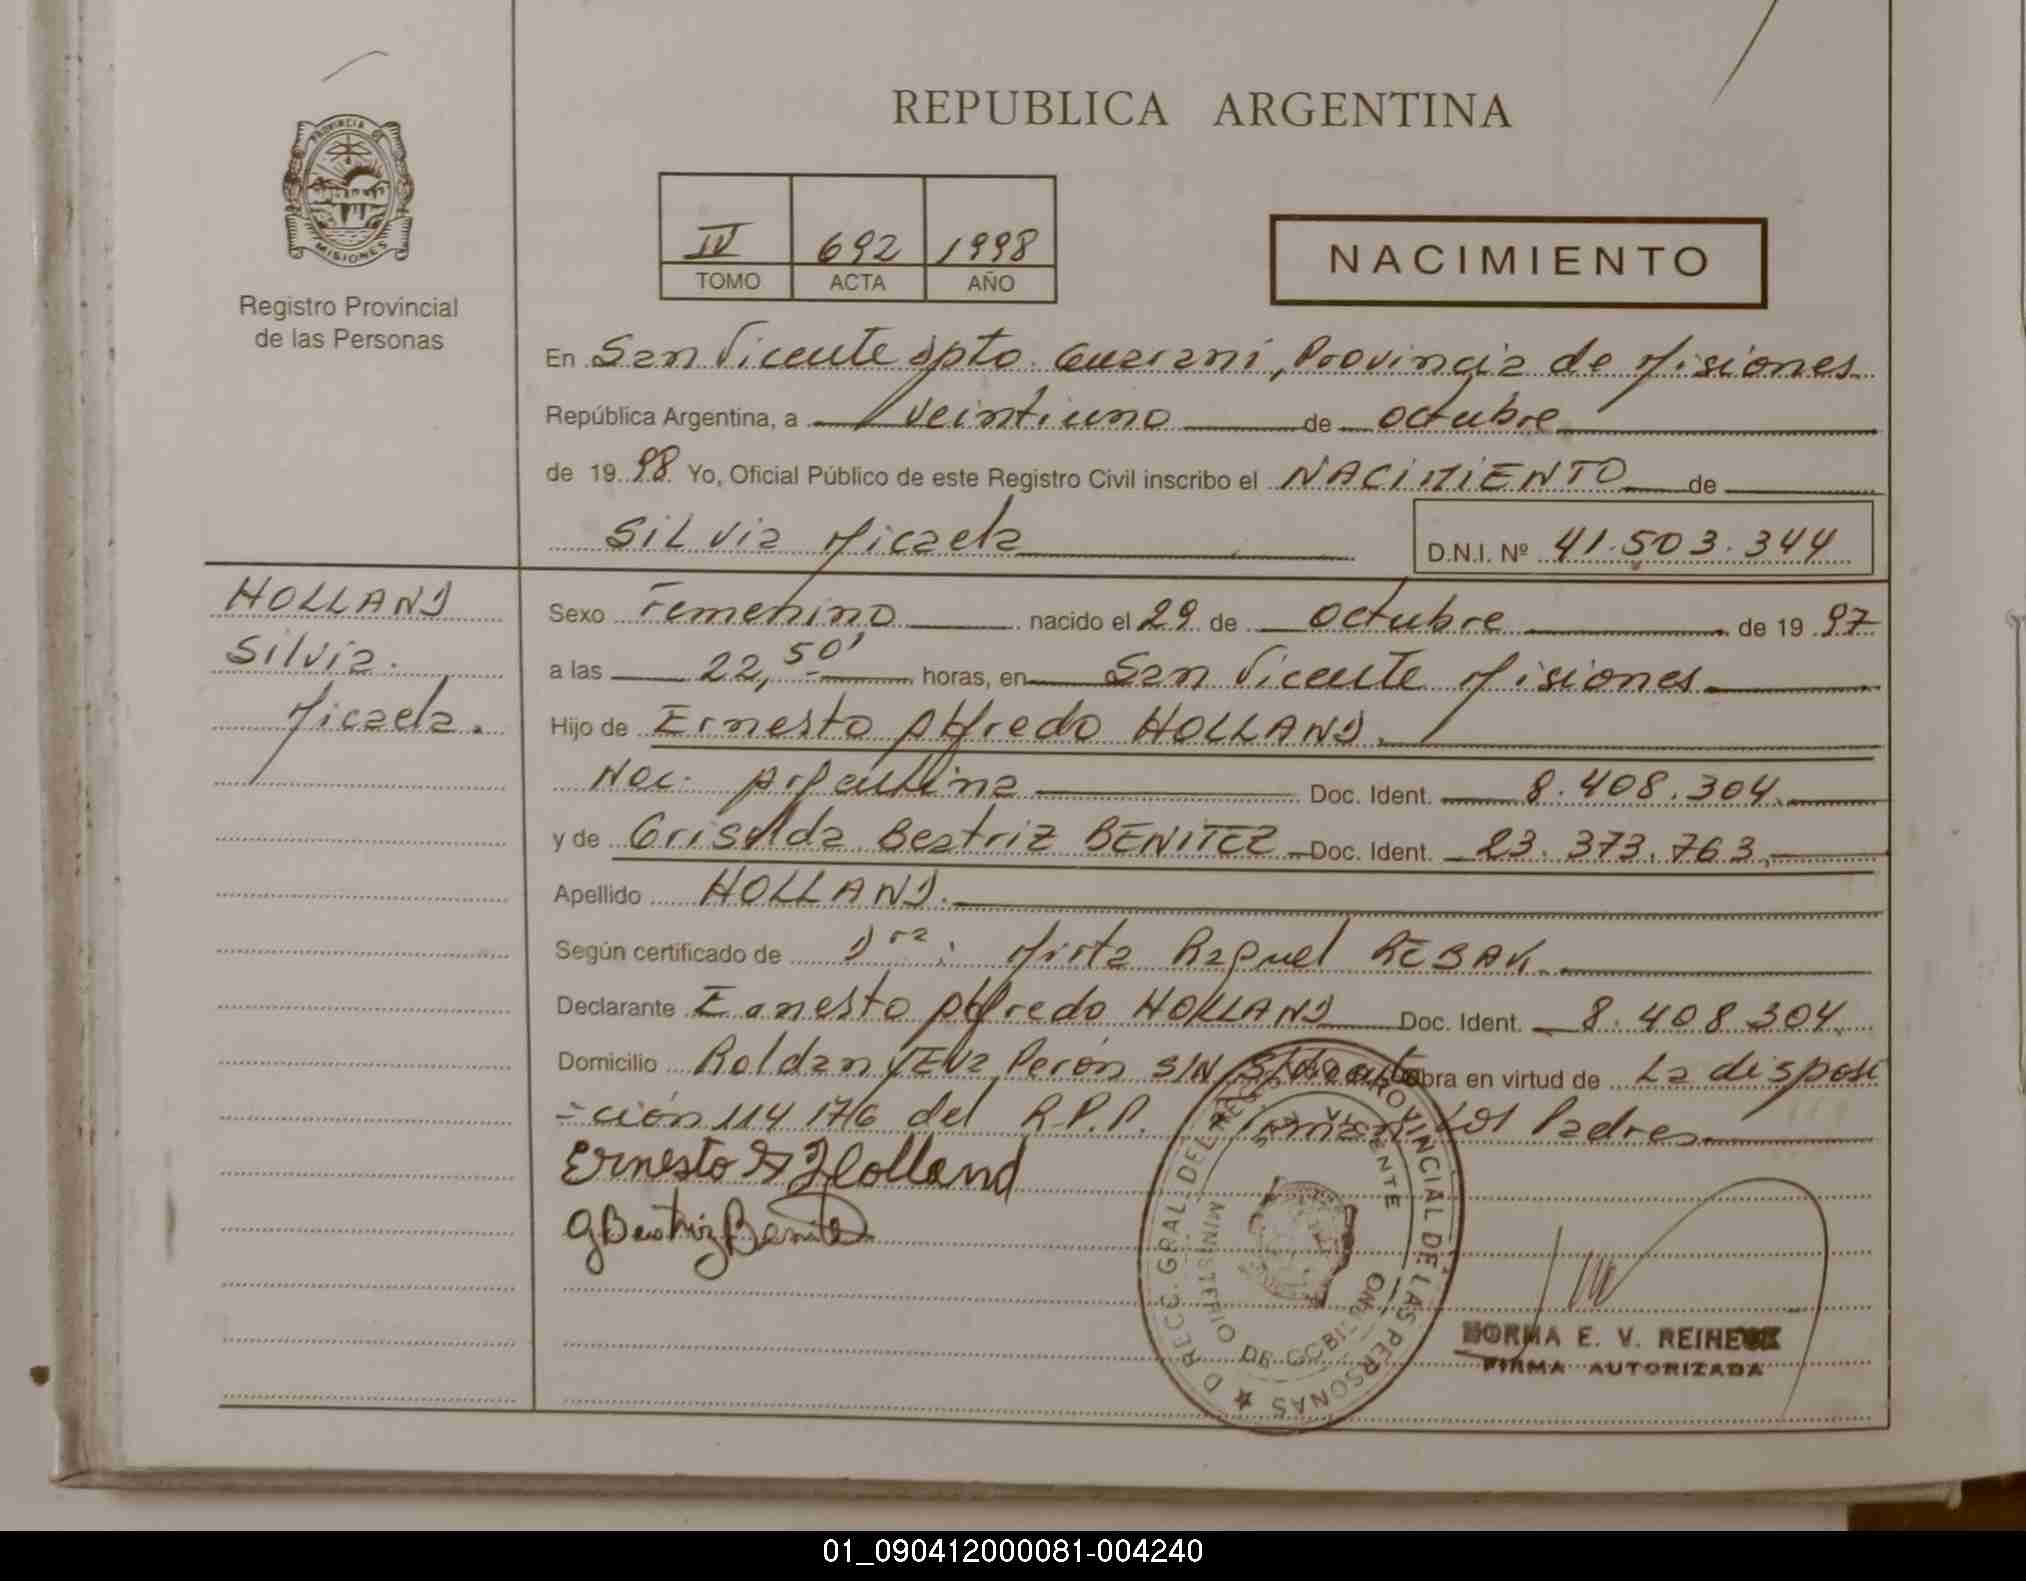 REPUBLICA ARGENTINA
PROVINCIA DE
MISIONES
Registro Provincial
de las Personas
IV 692 1998
TOMO ACTA AÑO
NACIMIENTO
En San Vicente Dpto. Guarani, Provincia de Misiones
República Argentina, a veintiuno de octubre
de 1998 Yo, Oficial Público de este Registro Civil inscribo el NACIMIENTO de
Silvia Micaela D.N.I. Nº 41.503.344
HOLLAND
Silvia
Micaela.
Sexo Femenino nacido el 29 de octubre de 1997
a las 22,50' horas, en San Vicente Misiones
Hijo de Ernesto Alfredo HOLLAND.
Nac. Argentina Doc. Ident. 8.408.304
y de Griselda Beatriz BENITEZ Doc. Ident. 23.373.763
Apellido HOLLAND.
Según certificado de Dra: Mirta Raquel REBAK
Declarante Ernesto Alfredo HOLLAND Doc. Ident. 8.408.304
Domicilio Roldan y Eva Perón S/N obra en virtud de La disposi
-ción 114 176 del R.P.P. Firman los Padres
Ernesto A Holland
G Beatriz Benitez
DIRECC. GRAL. DEL REG. PROVINCIAL DE LAS PERSONAS
MINISTERIO DE GOBIERNO
NORMA E. V. REINECK
FIRMA AUTORIZADA
01_090412000081-004240